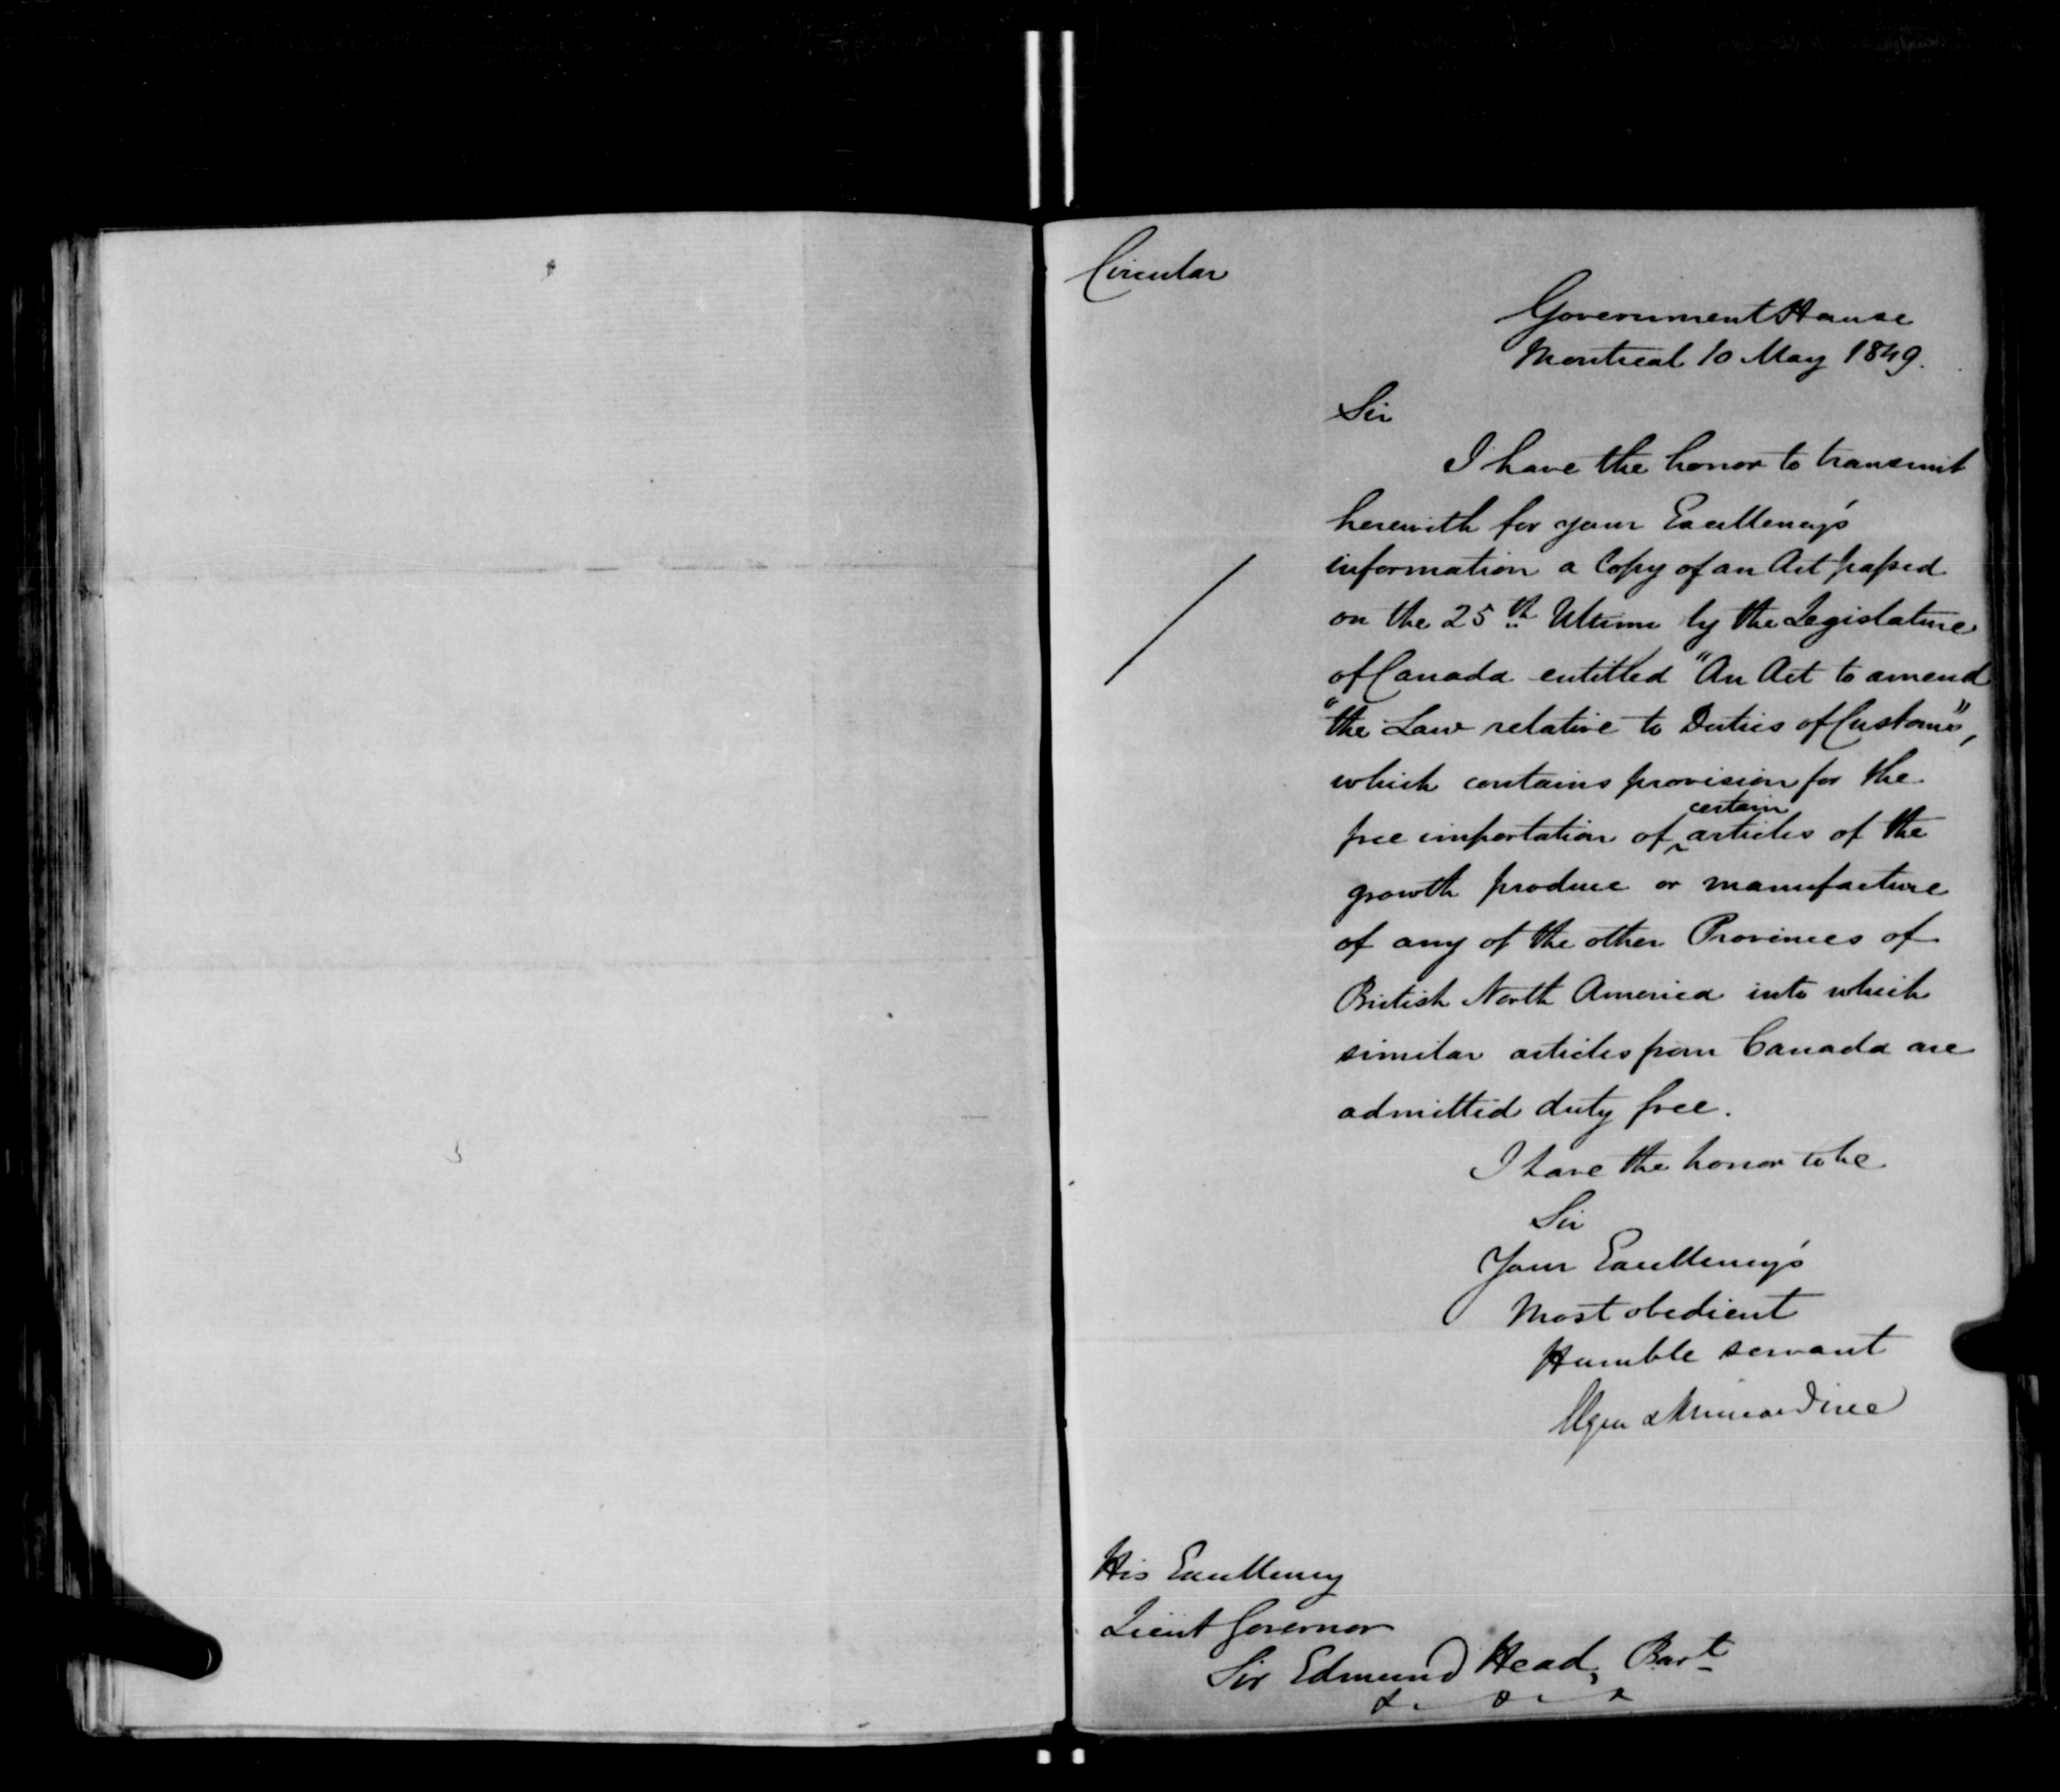 Circular
Government House
Montreal 10 May 1849.
Sir
I have the honor to transmit
herewith for your Excellency's
information a Copy of an Act passed
on the 25th Ultimo by the Legislature
of Canada entitled "An Act to amend
"the Law relative to Duties of Customs",
which contains provision for the
certain
free importation of articles of the
growth produce or manufacture
of any of the other Provinces of
British North America into which
similar articles from Canada are
admitted duty free.
I have the honor to be
Sir
Your Excellency's
Most obedient
Humble servant
Elgin & Kincardine
His Excellency
Lieut Governor
Sir Edmund Head, Bart